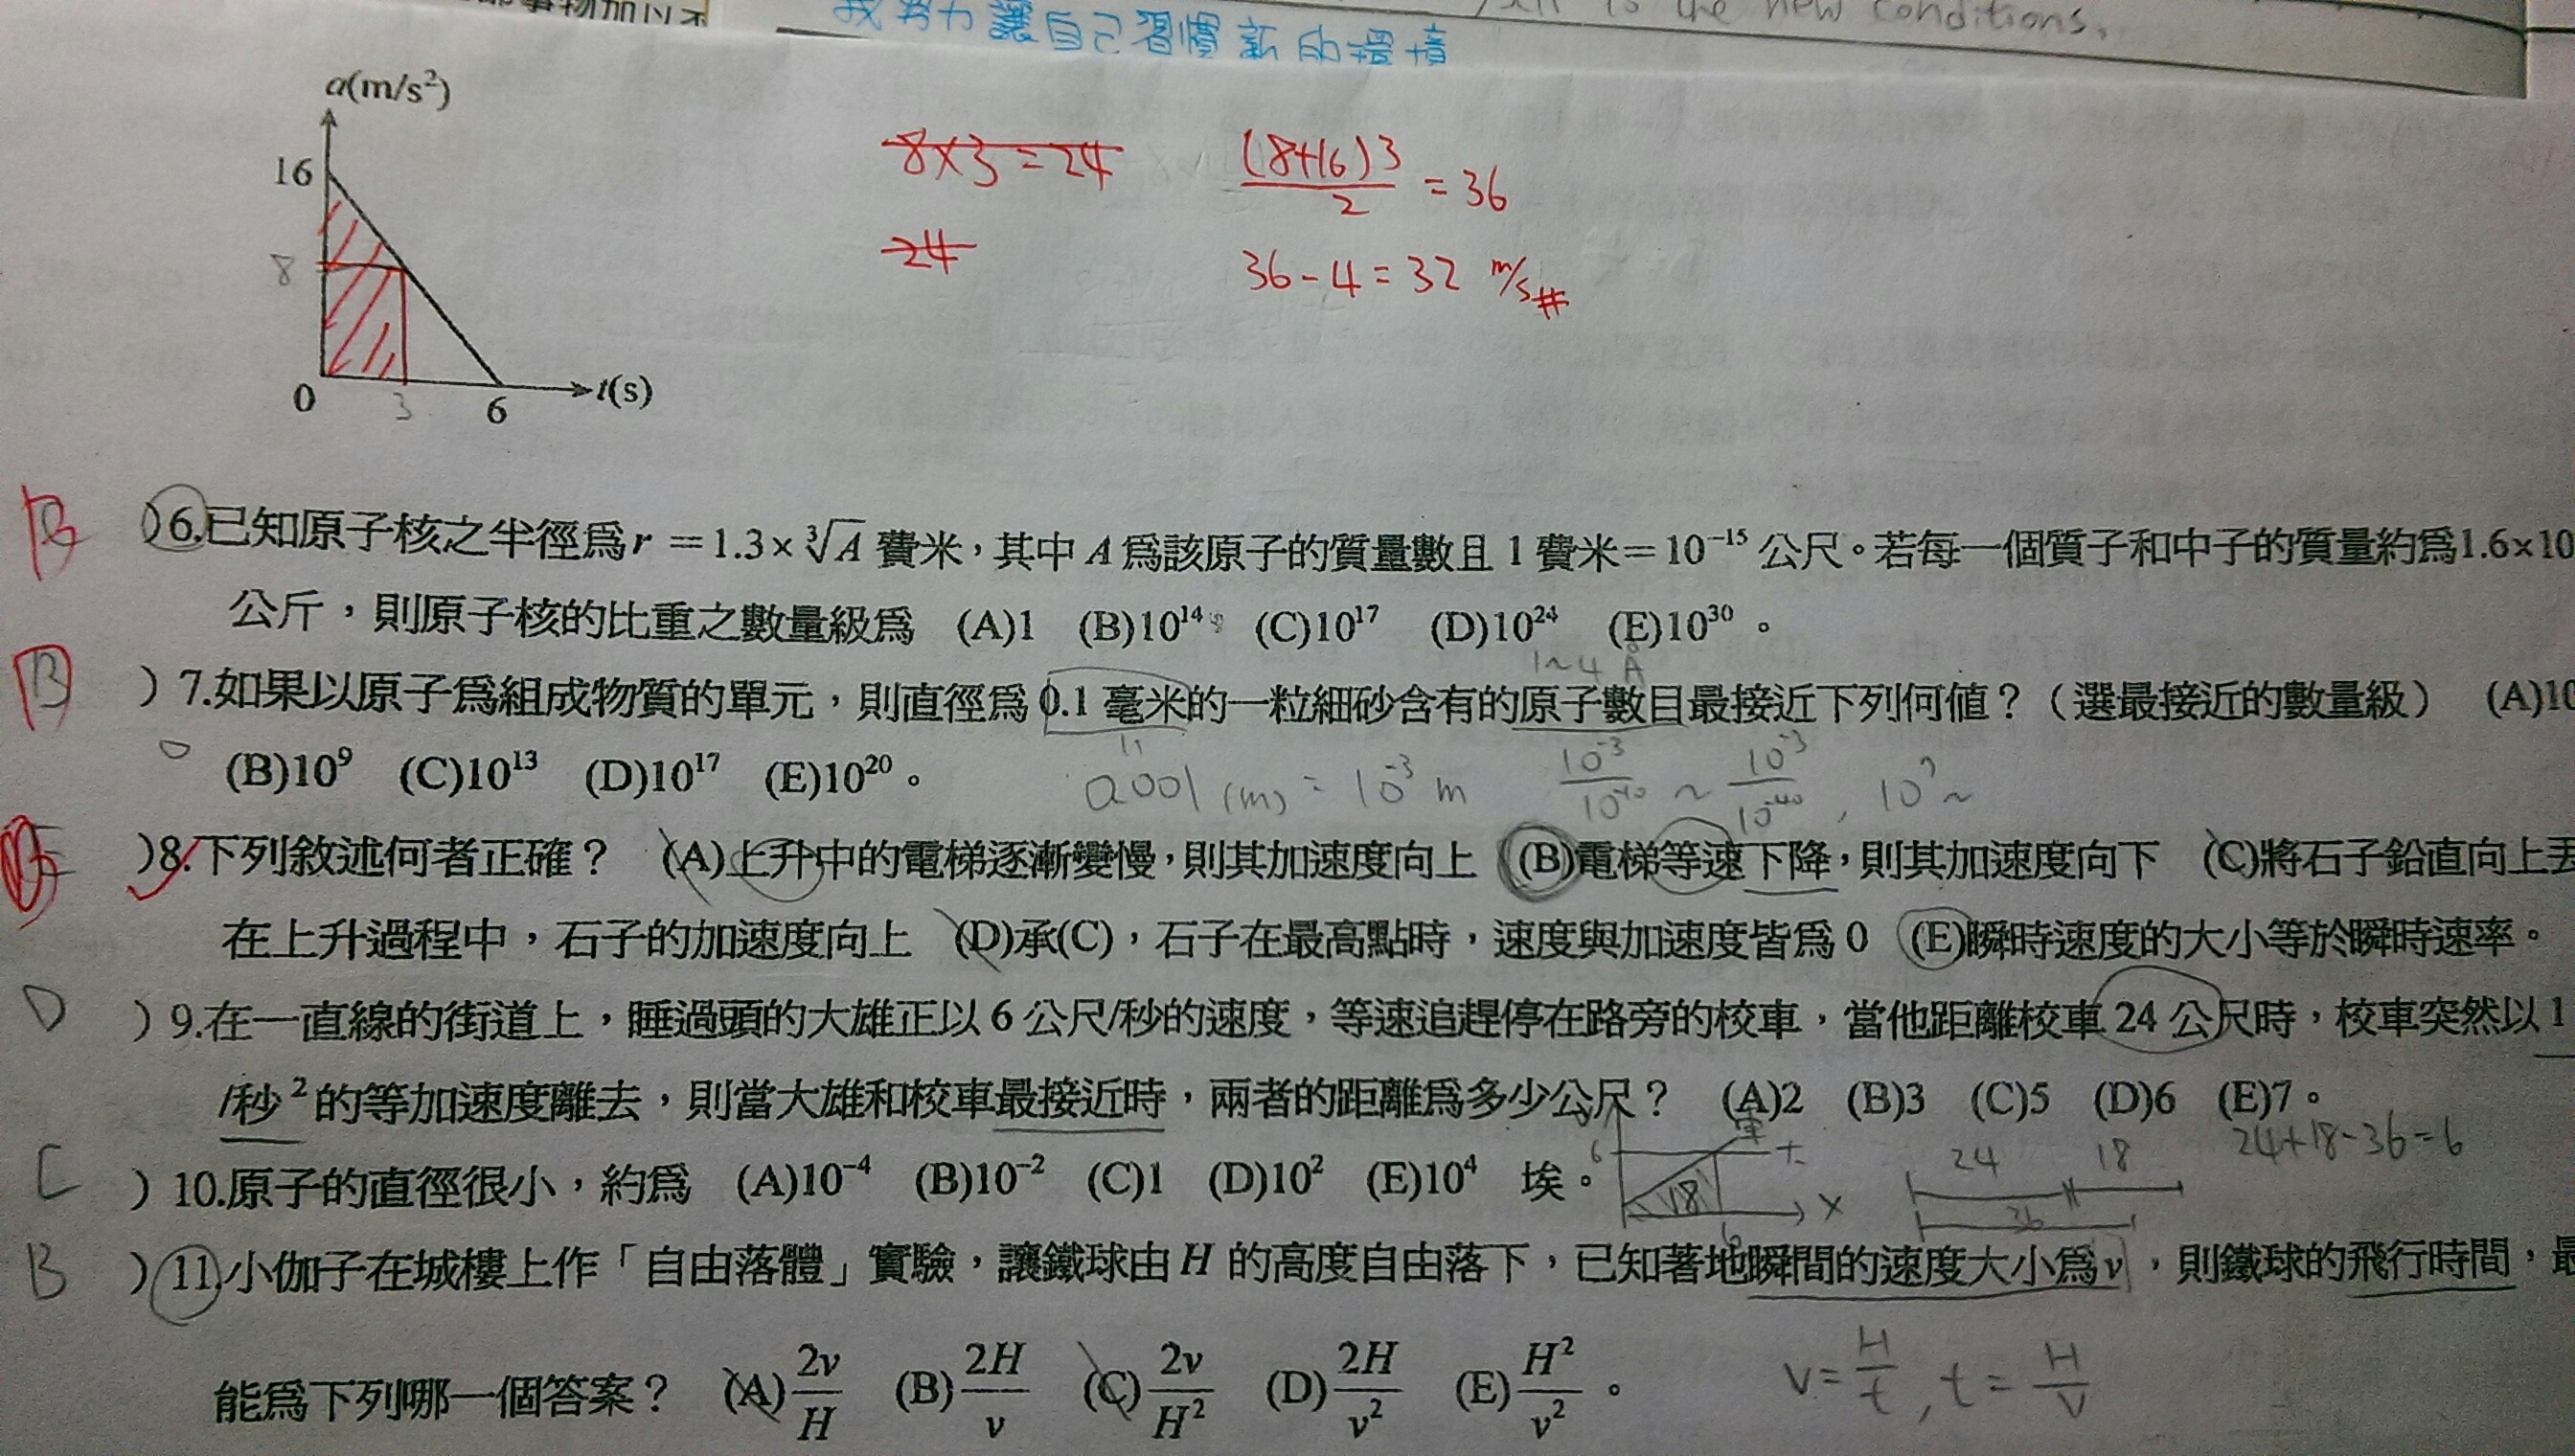 我努力讓自己習慣新的環境
to the new conditions.
a(m/s²)
16
8
0
3
6
t(s)
8×3=24
24
(8+16)3/2 = 36
36-4=32 m/s #
B )6.已知原子核之半徑為r=1.3×∛A 費米，其中 A 為該原子的質量數且 1 費米=10⁻¹⁵ 公尺。若每一個質子和中子的質量約為1.6×10
公斤，則原子核的比重之數量級為 (A)1 (B)10¹⁴ (C)10¹⁷ (D)10²⁴ (E)10³⁰。
1~4 Å
B )7.如果以原子為組成物質的單元，則直徑為 0.1 毫米的一粒細砂含有的原子數目最接近下列何值？（選最接近的數量級） (A)10
(B)10⁹ (C)10¹³ (D)10¹⁷ (E)10²⁰。
0.001 (m) = 10⁻³ m
)8.下列敘述何者正確？ (A)上升中的電梯逐漸變慢，則其加速度向上 (B)電梯等速下降，則其加速度向下 (C)將石子鉛直向上丟
在上升過程中，石子的加速度向上 (D)承(C)，石子在最高點時，速度與加速度皆為 0 (E)瞬時速度的大小等於瞬時速率。
D )9.在一直線的街道上，睡過頭的大雄正以 6 公尺/秒的速度，等速追趕停在路旁的校車，當他距離校車 24 公尺時，校車突然以 1
/秒²的等加速度離去，則當大雄和校車最接近時，兩者的距離為多少公尺？ (A)2 (B)3 (C)5 (D)6 (E)7。
24+18-36=6
C )10.原子的直徑很小，約為 (A)10⁻⁴ (B)10⁻² (C)1 (D)10² (E)10⁴ 埃。
6 車 大 18 6 x
24 18
36
B )11.小伽子在城樓上作「自由落體」實驗，讓鐵球由 H 的高度自由落下，已知著地瞬間的速度大小為v，則鐵球的飛行時間，最
能為下列哪一個答案？ (A)2v/H (B)2H/v (C)2v/H² (D)2H/v² (E)H²/v²。
v=H/t, t=H/v